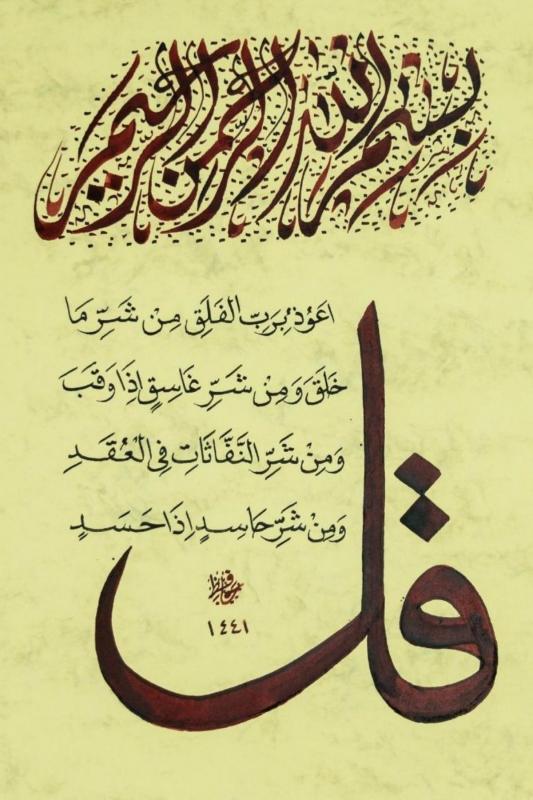 بسم الله الرحمن الرحيم
قل
اَعُوذُ بِرَبِّ الفَلَقِ مِنْ شَرِّ مَا
خَلَقَ وَمِنْ شَرِّ غَاسِقٍ اِذَا وَقَبَ
وَمِنْ شَرِّ النَّفَّاثَاتِ فِي الْعُقَدِ
وَمِنْ شَرِّ حَاسِدٍ اِذَا حَسَدَ
١٤٤١